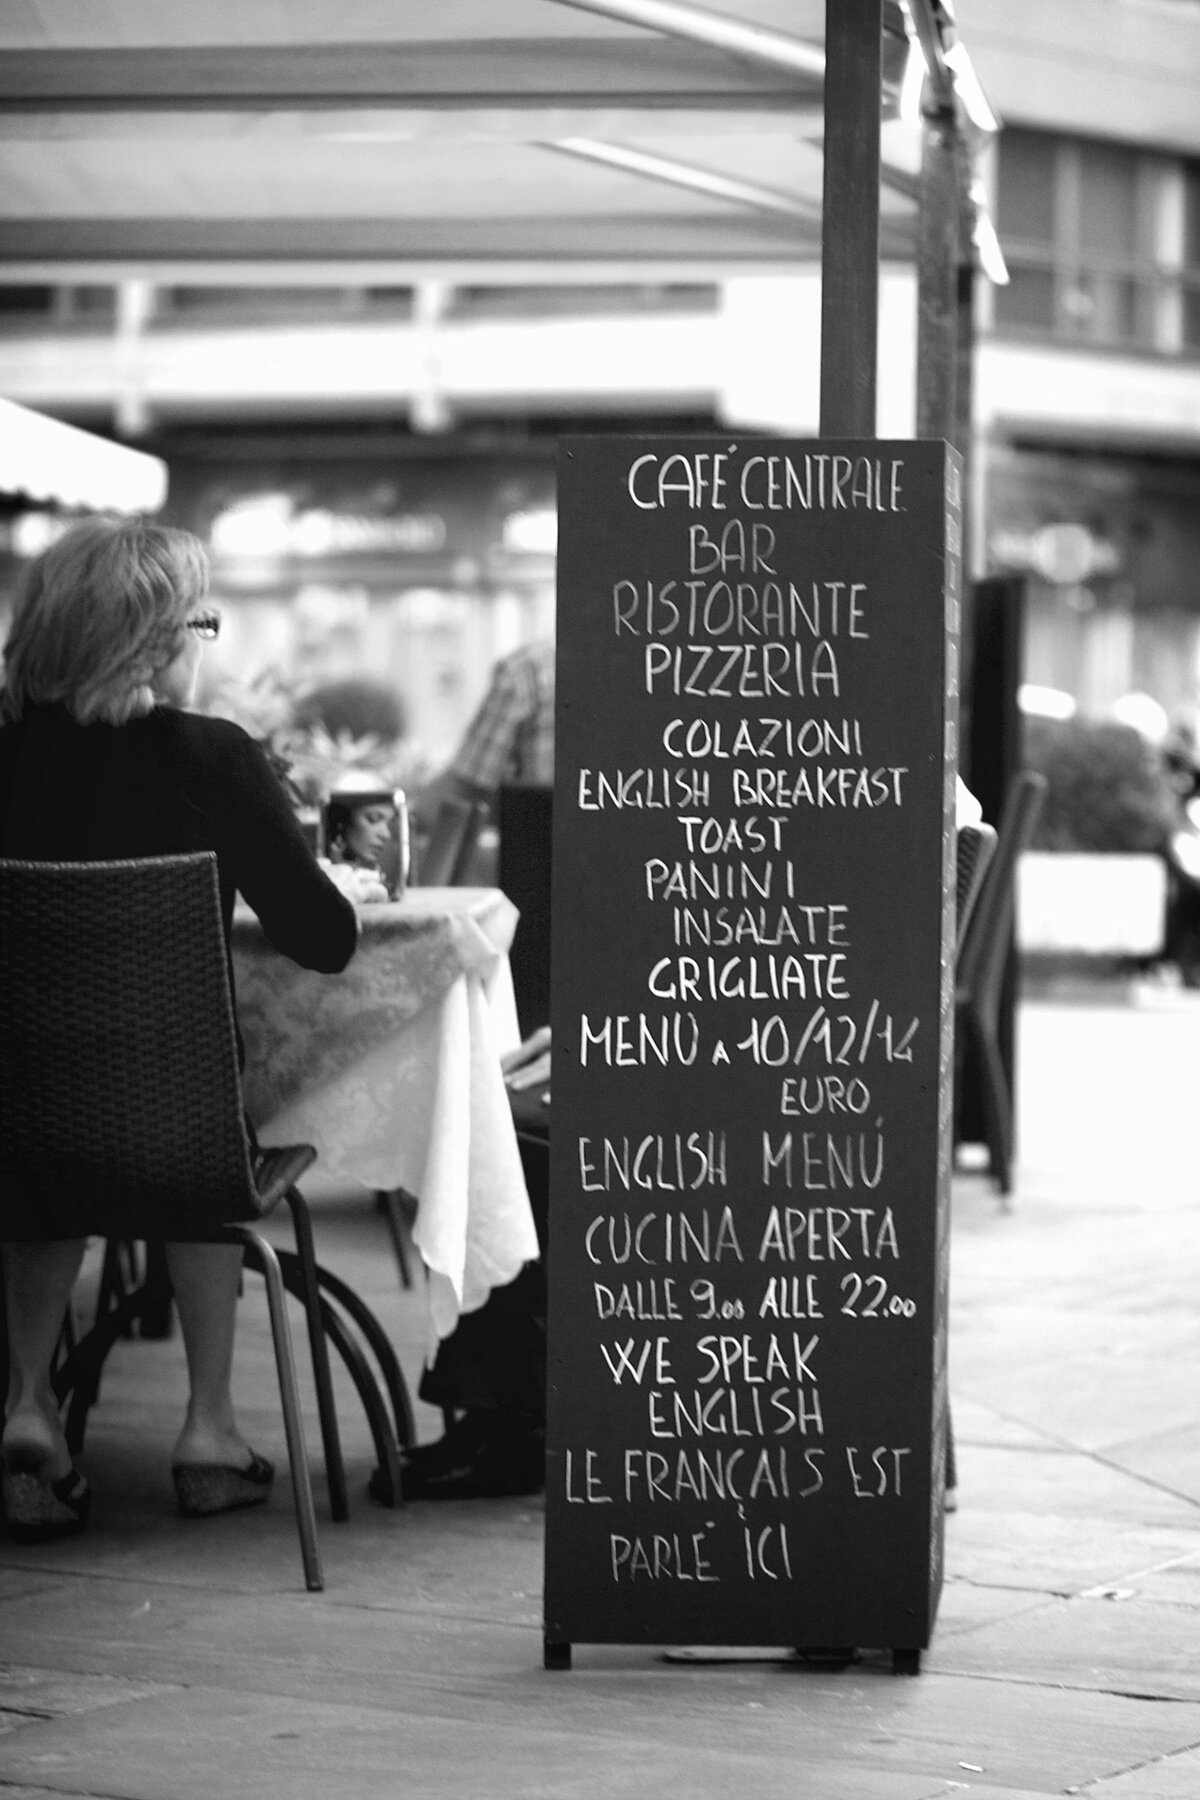 CAFÉ CENTRALE
BAR
RISTORANTE
PIZZERIA
COLAZIONI
ENGLISH BREAKFAST
TOAST
PANINI
INSALATE
GRIGLIATE
MENÙ A 10/12/14
EURO
ENGLISH MENÚ
CUCINA APERTA
DALLE 9.00 ALLE 22.00
WE SPEAK
ENGLISH
LE FRANÇAIS EST
PARLÉ ICI